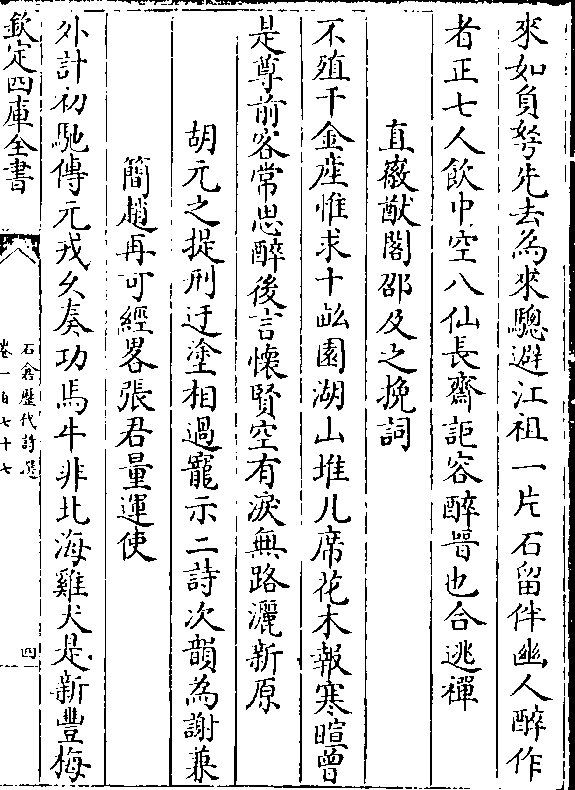 來如負弩先去為來驄避江祖一片石留伴幽人醉作
者正七人飲中空八仙長齋詎容醉晉也合逃禪
直徽猷閣邵及之挽詞
不殖千金產惟求十畝園湖山堆几席花木報寒暄曾
是尊前客常思醉後言懷賢空有淚無路灑新原
胡元之提刑迂塗相過寵示二詩次韻為謝兼
簡趙再可經畧張君量運使
外計初馳傳元戎久奏功馬牛非北海雞犬是新豐梅
欽定四庫全書
石倉歷代詩選
卷一百七十七
四